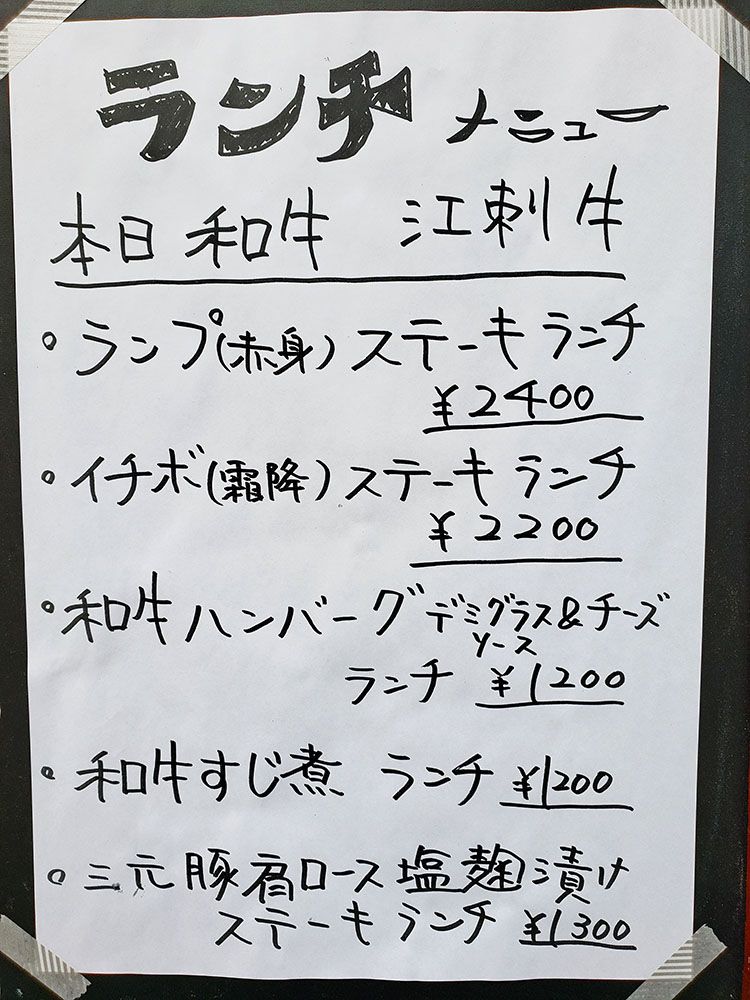 ランチ メニュー
本日 和牛 江刺牛
・ランプ(赤身)ステーキランチ
¥2400
・イチボ(霜降)ステーキランチ
¥2200
・和牛ハンバーグデミグラス&チーズ
ソース
ランチ ¥1200
・和牛すじ煮 ランチ ¥1200
・三元豚肩ロース塩麹漬け
ステーキランチ ¥1300